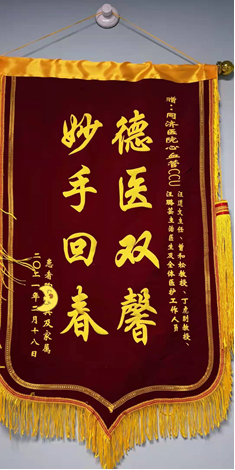 赠：同济医院心血管CCU
汪道文主任、曾和松教授、丁虎副教授、
汪璐芸主治医生及全体医护工作人员
德医双馨
妙手回春
患者 及家属
二〇二一年二月十八日